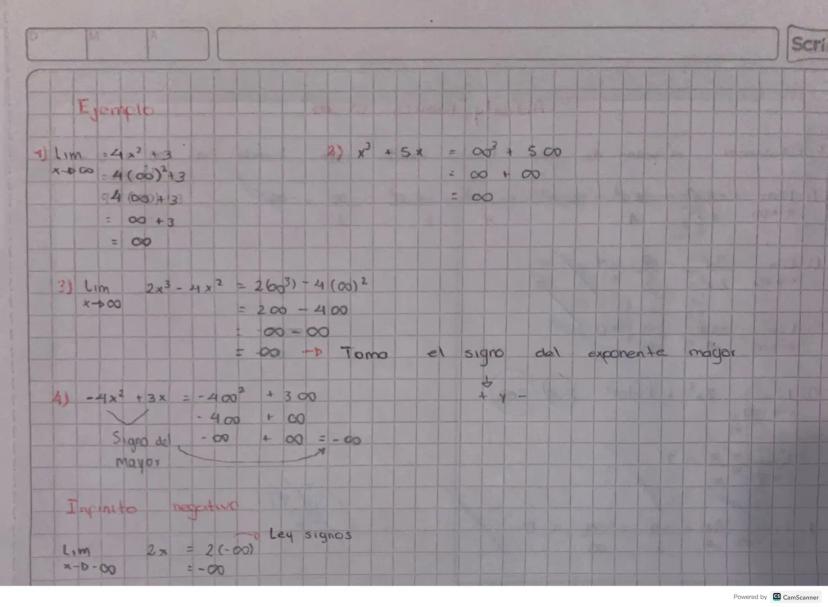 D M A
Scri
Ejemplo
1) Lim = 4x² + 3
x→∞ = 4(∞)² + 3
= 4(∞) + 3
= ∞ + 3
= ∞
2) x³ + 5x = ∞³ + 5∞
= ∞ + ∞
= ∞
3) Lim 2x³ - 4x² = 2(∞³) - 4(∞)²
x→∞ = 2∞ - 4∞
= ∞ - ∞
= ∞ → Tomo el signo del exponente mayor
↓
+ y -
4) -4x² + 3x = -4∞² + 3∞
- 4∞ + ∞
Signo del - ∞ + ∞ = -∞
mayor
Infinito negativo
→ Ley signos
Lim 2x = 2(-∞)
x→-∞ = -∞
Powered by CS CamScanner